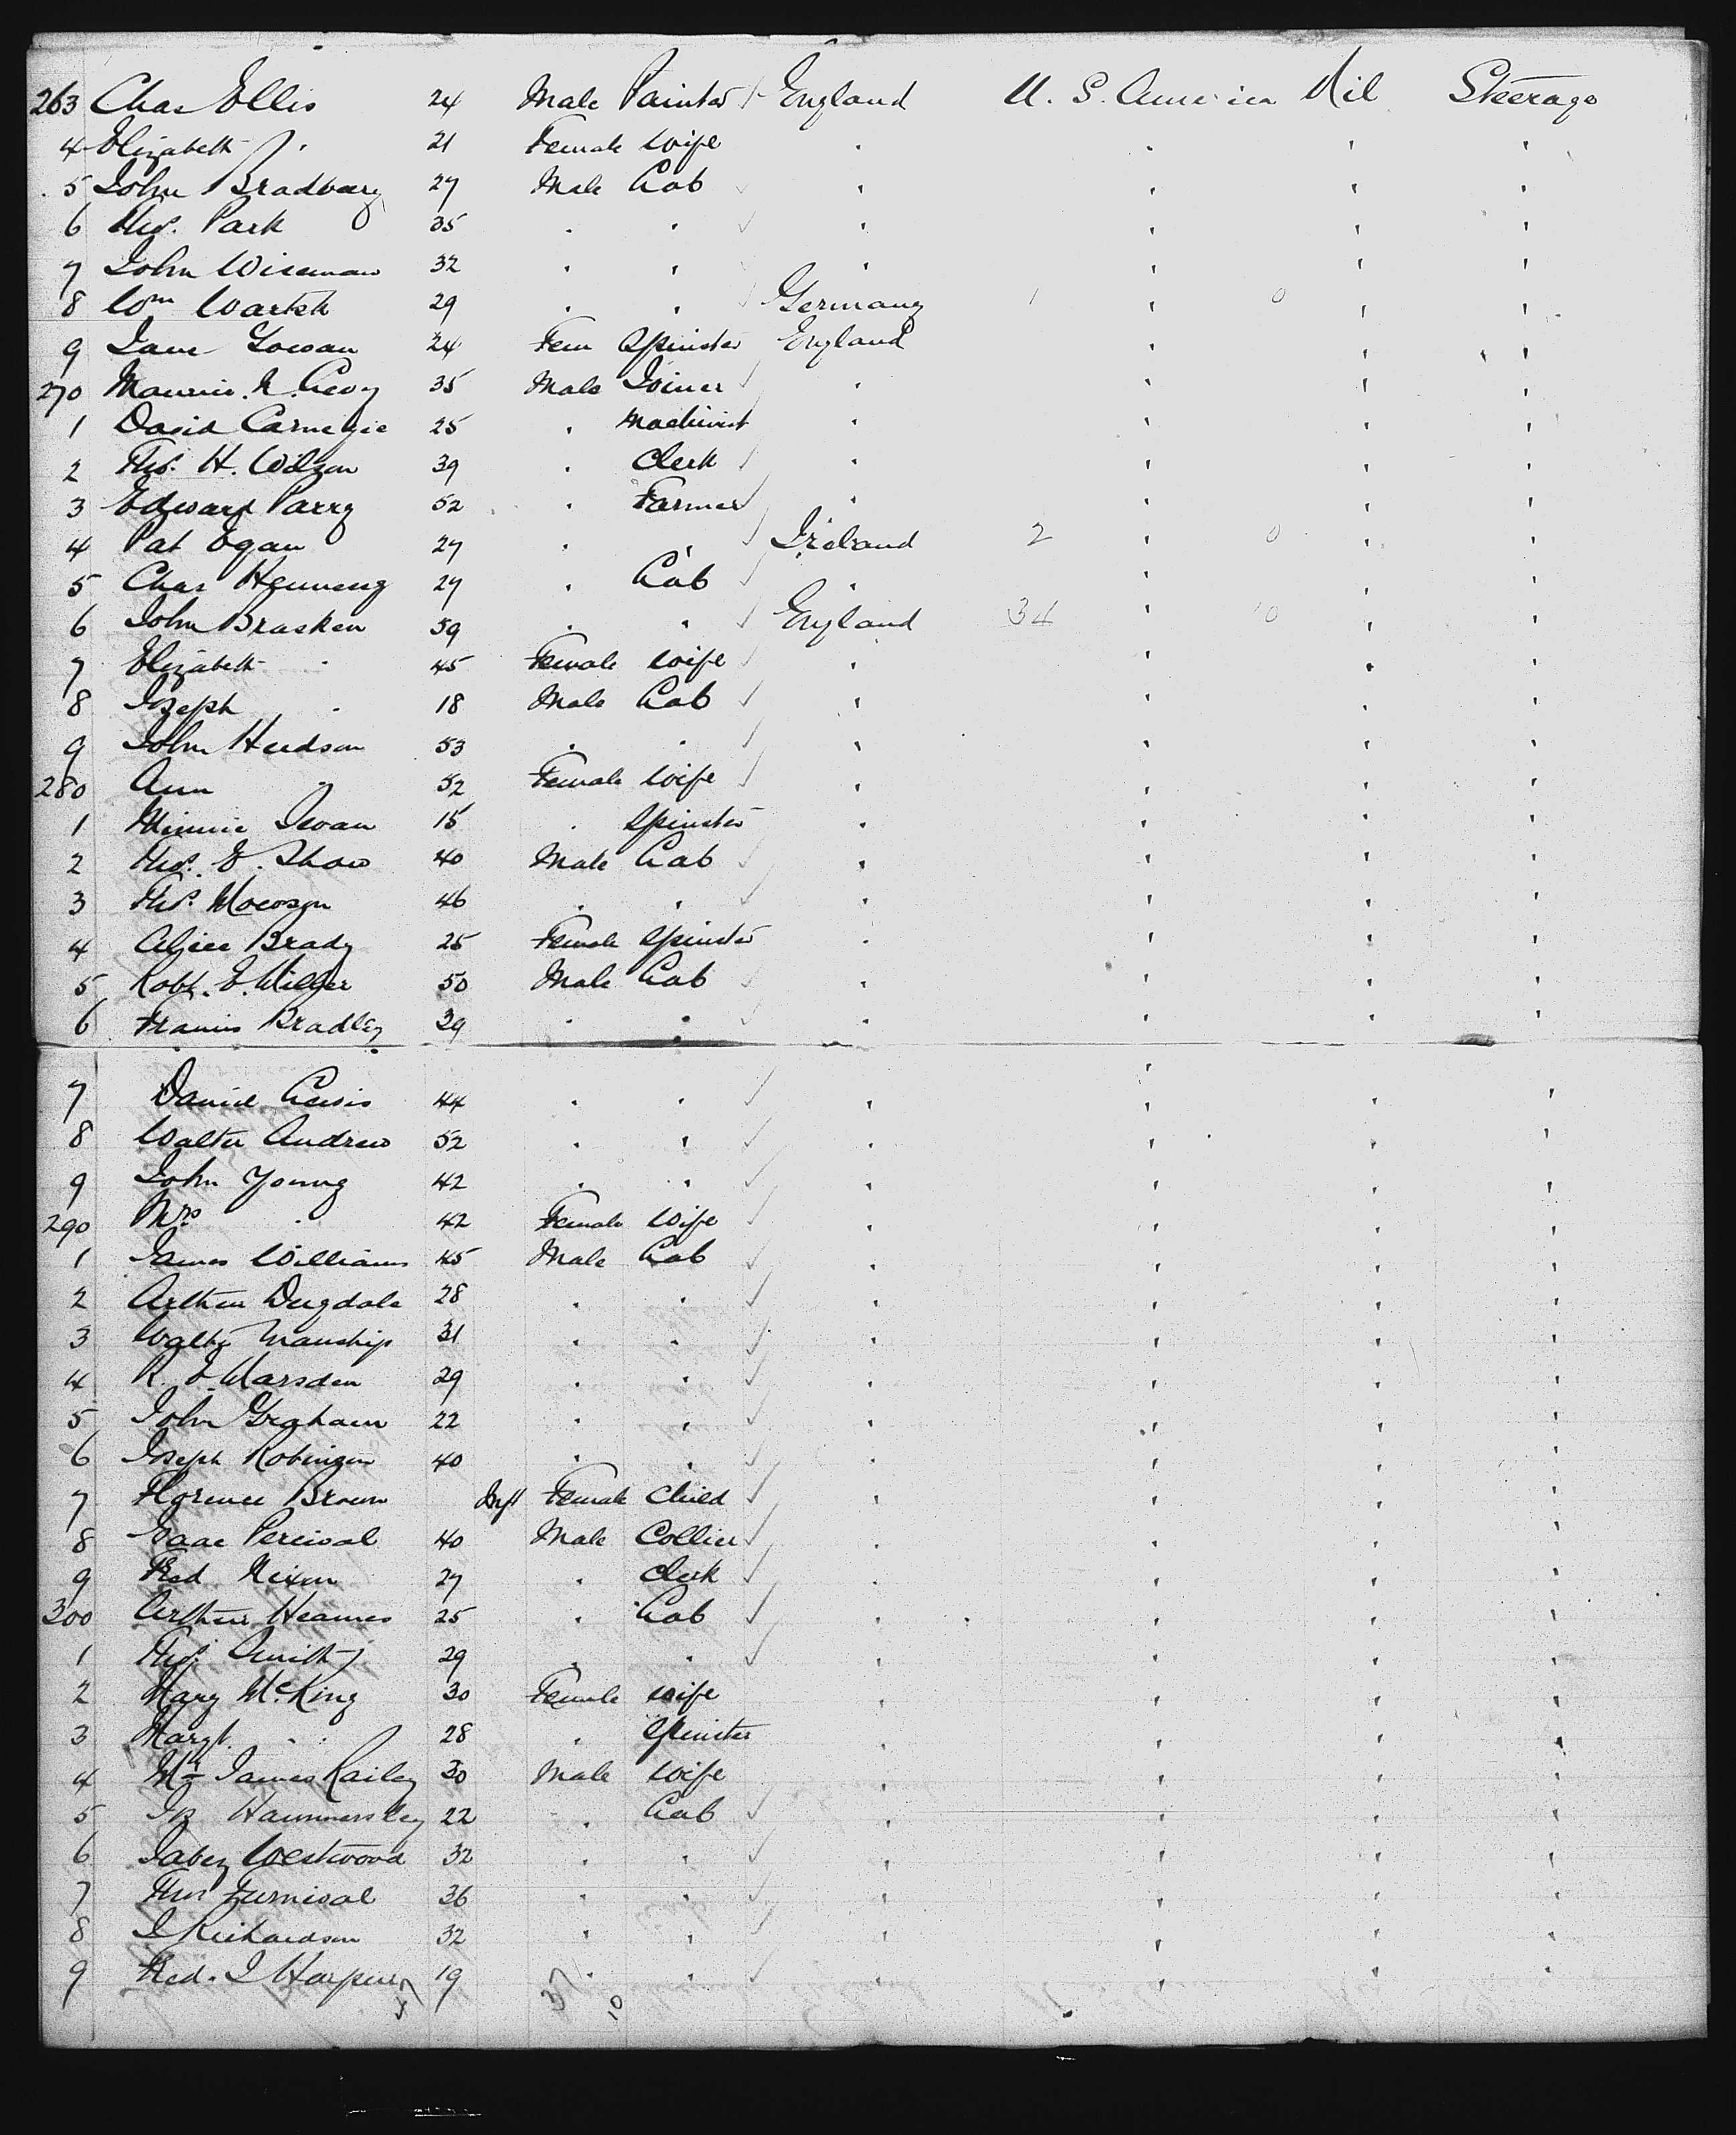 263 Chas Ellis 24 Male Painter England U. S. America Nil Steerage
4 Elizabeth " 21 Female Wife " " " "
5 John Bradbury 27 Male Lab " " " "
6 Thos. Park 35 " " " " " "
7 John Wiseman 32 " " " " " "
8 Wm 29 " " Germany 1 " 0 " "
9 Jane Gowan 24 Fem Spinster England " " "
270 Maurice. N. Levy 35 Male Joiner " " " "
1 David Carnegie 25 " Machinist " " " "
2 Thos. H. Wilson 39 " Clerk " " " "
3 Edward Parry 52 " Farmer " " " "
4 Pat Egan 27 " " Ireland 2 " 0 " "
5 Chas 27 " Lab " " " "
6 John Brasken 59 " " England 34 " 10 " "
7 Elizabeth " 45 Female Wife " " " "
8 Joseph " 18 Male Lab " " " "
9 John Hudson 53 " " " " " "
280 Ann " 52 Female Wife " " " "
1 Minnie Swan 15 " Spinster " " " "
2 Thos. E. Shaw 40 Male Lab " " " "
3 Thos. 46 " " " " " "
4 Alice Brady 25 Female Spinster " " " "
5 Robt. E. 50 Male Lab " " " "
6 Francis Bradley 39 " " " " " "
7 Daniel Lewis 44 " " " " " "
8 Walter Andrew 52 " " " " " "
9 John Young 42 " " " " " "
290 Mrs " 42 Female Wife " " " "
1 James Williams 45 Male Lab " " " "
2 Arthur Dugdale 28 " " " " " "
3 Walter Manship 31 " " " " " "
4 R. J. Marsden 29 " " " " " "
5 John Graham 22 " " " " " "
6 Joseph Robinson 40 " " " " " "
7 Florence Brown Inft Female Child " " " "
8 Isaac Percival 40 Male Collier " " " "
9 Fred Nixon 27 " Clerk " " " "
300 Arthur Heames 25 " Lab " " " "
1 Thos. Smith 29 " " " " " "
2 Mary McKing 30 Female Wife " " " "
3 Margt. " " 28 " Spinster " " " "
4 Mr James Railey 30 Male Wife " " " "
5 Hammersley 22 " Lab " " " "
6 Jabez Westwood 32 " " " " " "
7 Thos Furnival 36 " " " " " "
8 J Richardson 32 " " " " " "
9 Fred. J Harpur 19 " " " " " "
47 37 10